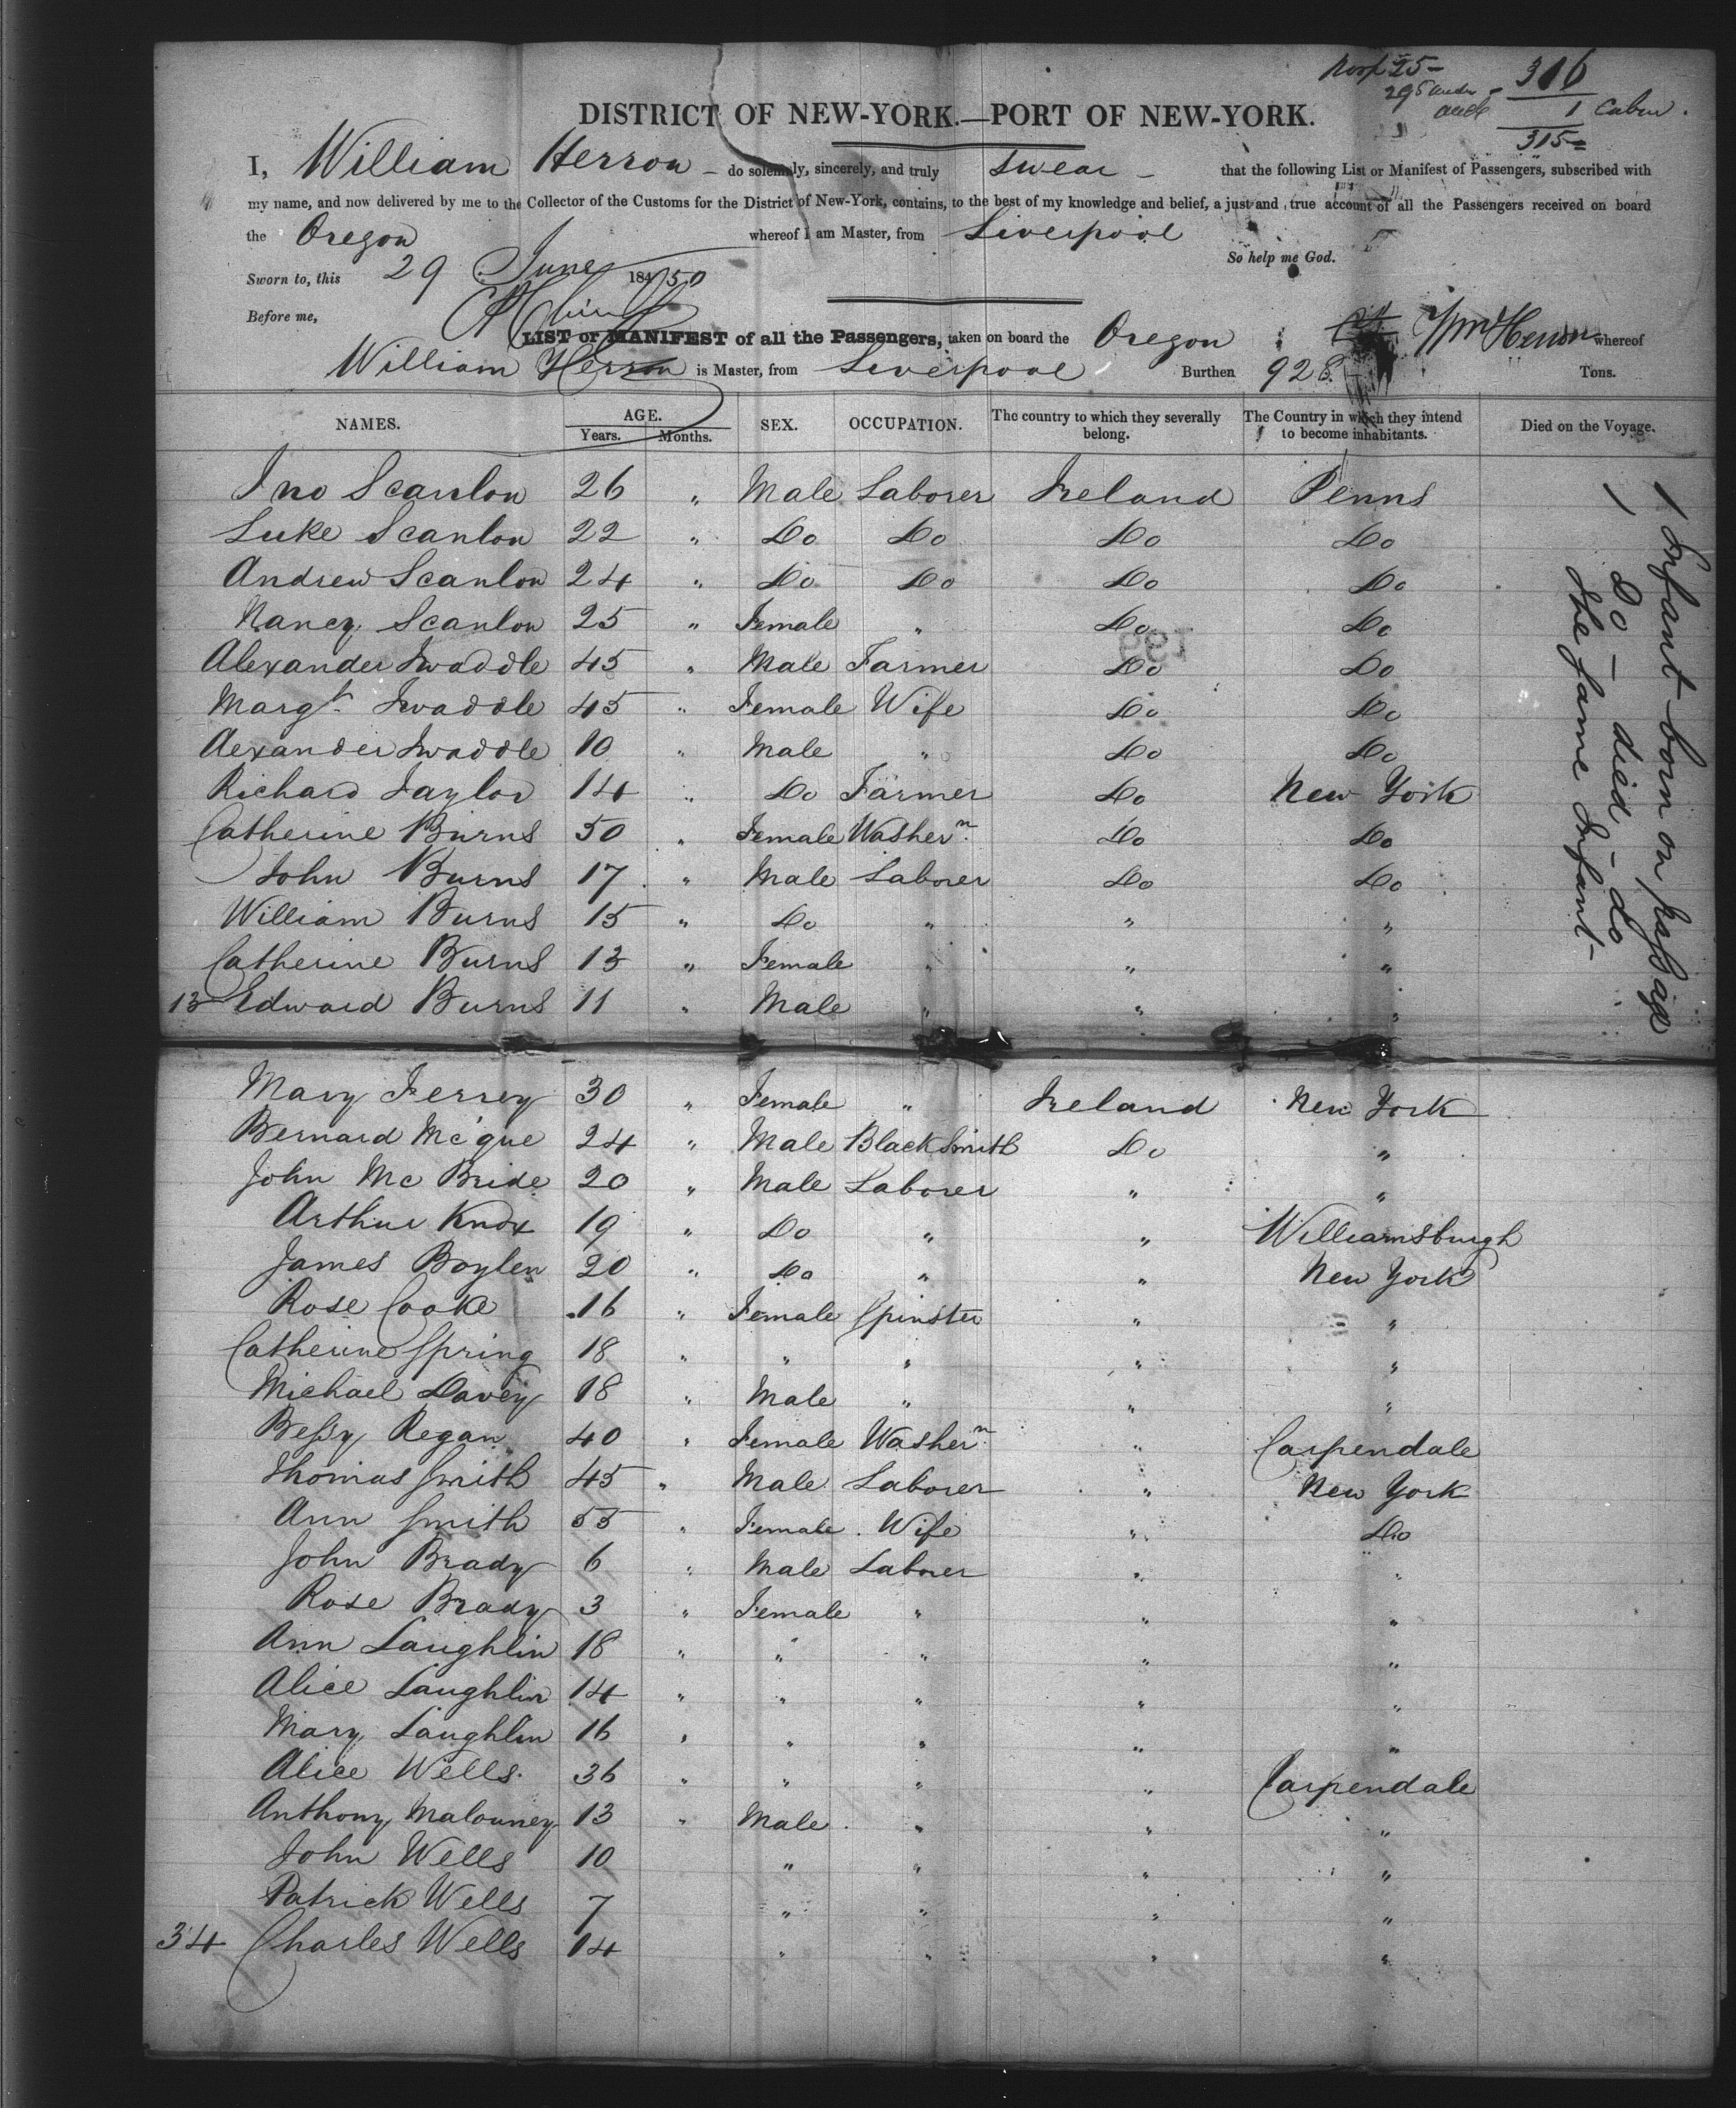 316
295 under
1 Cabin.
315=
DISTRICT OF NEW-YORK.—PORT OF NEW-YORK.
I, William Herron - do solemnly, sincerely, and truly swear - that the following List or Manifest of Passengers, subscribed with
my name, and now delivered by me to the Collector of the Customs for the District of New-York, contains, to the best of my knowledge and belief, a just and true account of all the Passengers received on board
the Oregon whereof I am Master, from Liverpool
So help me God.
Sworn to, this 29 June 184 50
Before me,
Wm Herron
LIST or MANIFEST of all the Passengers, taken on board the Oregon whereof
William Herron is Master, from Liverpool Burthen 928 Tons.
NAMES. AGE. Years. Months. SEX. OCCUPATION. The country to which they severally belong. The Country in which they intend to become inhabitants. Died on the Voyage.
Jno Scanlon 26 " Male Laborer Ireland Penns
Luke Scanlon 22 " Do Do Do Do
Andrew Scanlon 24 " Do Do Do Do
Nancy Scanlon 25 " Female " Do Do
Alexander Swaddle 45 " Male Farmer Do Do
Margt. Swaddle 45 " Female Wife Do Do
Alexander Swaddle 10 " Male " Do Do
Richard Taylor 14 " Do Farmer Do New York
Catherine Burns 50 " Female Washern. Do Do
John Burns 17 " Male Laborer Do Do
William Burns 15 " Do " " "
Catherine Burns 13 " Female " " "
13 Edward Burns 11 " Male " " "
Mary Ferrey 30 " Female " Ireland New York
Bernard Mc'gue 24 " Male BlackSmith Do "
John Mc Bride 20 " Male Laborer " "
Arthur Knox 19 " Do " " Williamsburgh
James Boylen 20 " Do " " New York
Rose Cooke 16 " Female Spinster " "
Catherine Spring 18 " " " " "
Michael Davey 18 " Male " " "
Bessy Regan 40 " Female Washern. " Carpendale
Thomas Smith 45 " Male Laborer " New York
Ann Smith 55 " Female Wife " Do
John Brady 6 " Male Laborer " "
Rose Brady 3 " Female " " "
Ann Laughlin 18 " " " " "
Alice Laughlin 14 " " " " "
Mary Laughlin 16 " " " " "
Alice Wells 36 " " " " Carpendale
Anthony Malouney 13 " Male " " "
John Wells 10 " " " "
Patrick Wells 7 " " " "
34 Charles Wells 14 " " " "
1 Infant born on passage
1 Do - died - do
the same Infant-